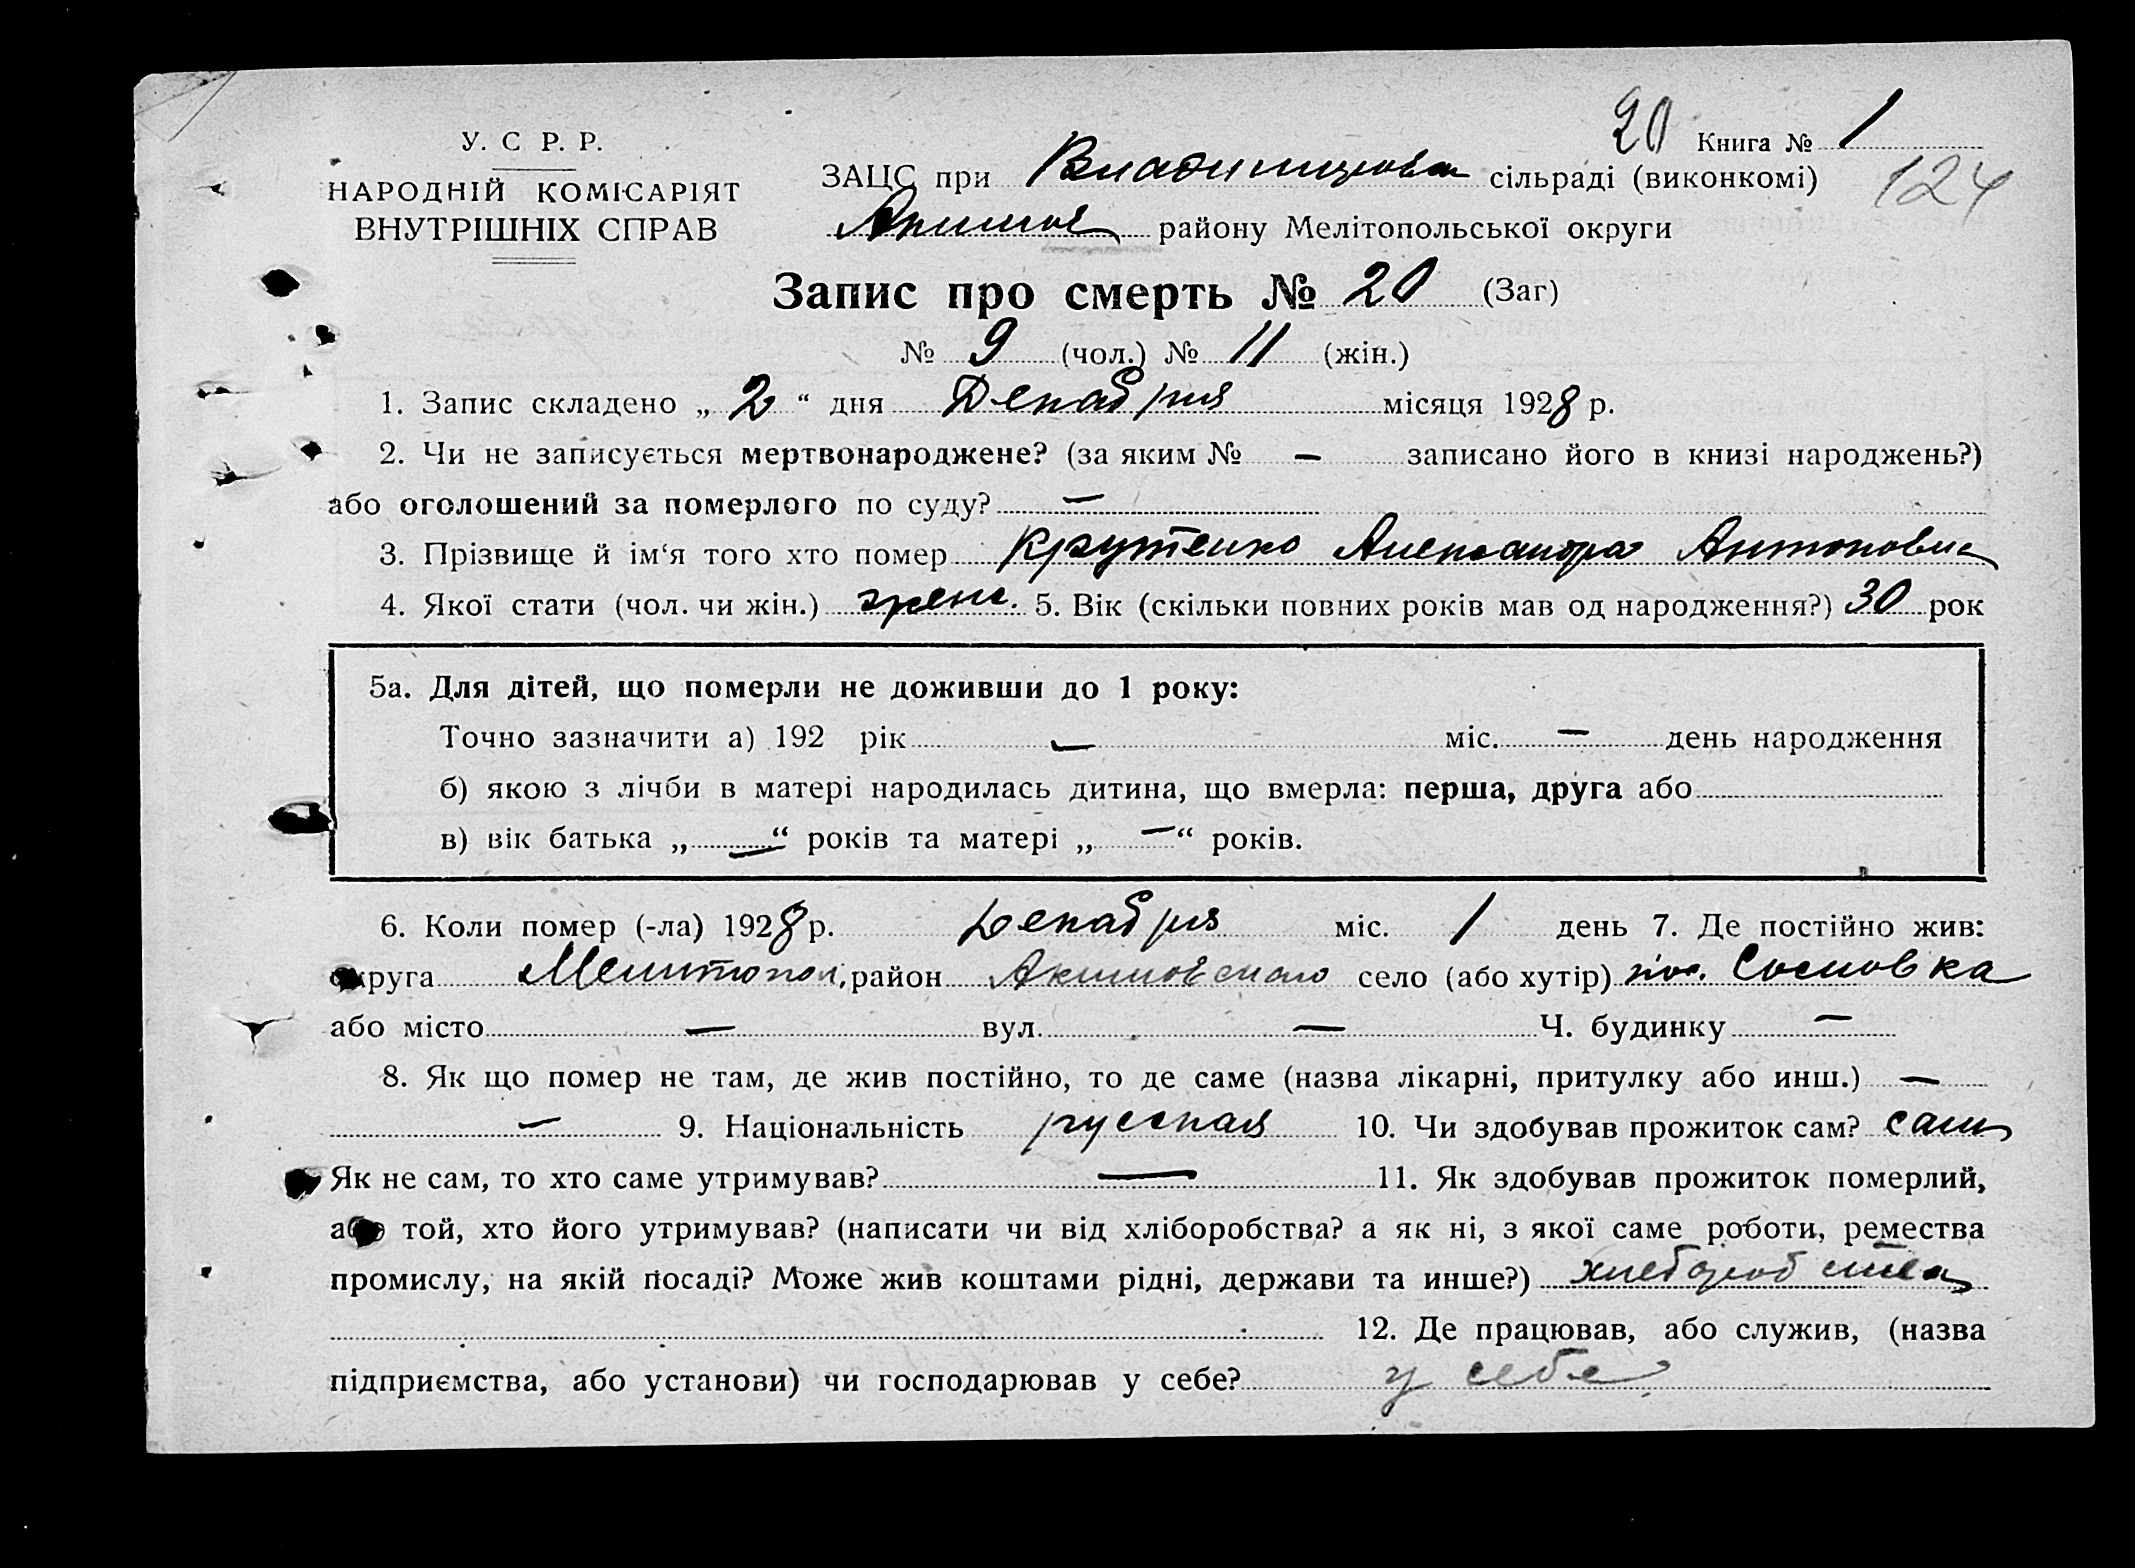 20 Книга № 1
У. С. Р. Р.
НАРОДНІЙ КОМІСАРІЯТ
ВНУТРІШНІХ СПРАВ
ЗАЦС при сільраді (виконкомі) 124
Акимов району Мелітопольської округи
Запис про смерть № 20 (Заг)
№ 9 (чол.) № 11 (жін.)
1. Запис складено „ 2 “ дня Декабря місяця 1928 р.
2. Чи не записується мертвонароджене? (за яким № — записано його в книзі народжень?)
або оголошений за померлого по суду? —
3. Прізвище й ім‘я того хто помер Крутенко Александра Антоновна
4. Якої стати (чол. чи жін.) женс. 5. Вік (скільки повних років мав од народження?) 30 рок
5а. Для дітей, що померли не доживши до 1 року:
Точно зазначити а) 192 рік — міс. — день народження
б) якою з лічби в матері народилась дитина, що вмерла: перша, друга або
в) вік батька „ — “ років та матері „ — “ років.
6. Коли помер (-ла) 1928 р. Декабря міс. 1 день 7. Де постійно жив:
округа Мелитопол. район Акимовского село (або хутір) пос. Сосновка
або місто — вул. — Ч. будинку —
8. Як що помер не там, де жив постійно, то де саме (назва лікарні, притулку або инш.) —
— 9. Національність русская 10. Чи здобував прожиток сам? сам
Як не сам, то хто саме утримував? — 11. Як здобував прожиток померлий,
або той, хто його утримував? (написати чи від хліборобства? а як ні, з якої саме роботи, ремества
промислу, на якій посаді? Може жив коштами рідні, держави та инше?) хлеборобства
12. Де працював, або служив, (назва
підприємства, або установи) чи господарював у себе? у себе